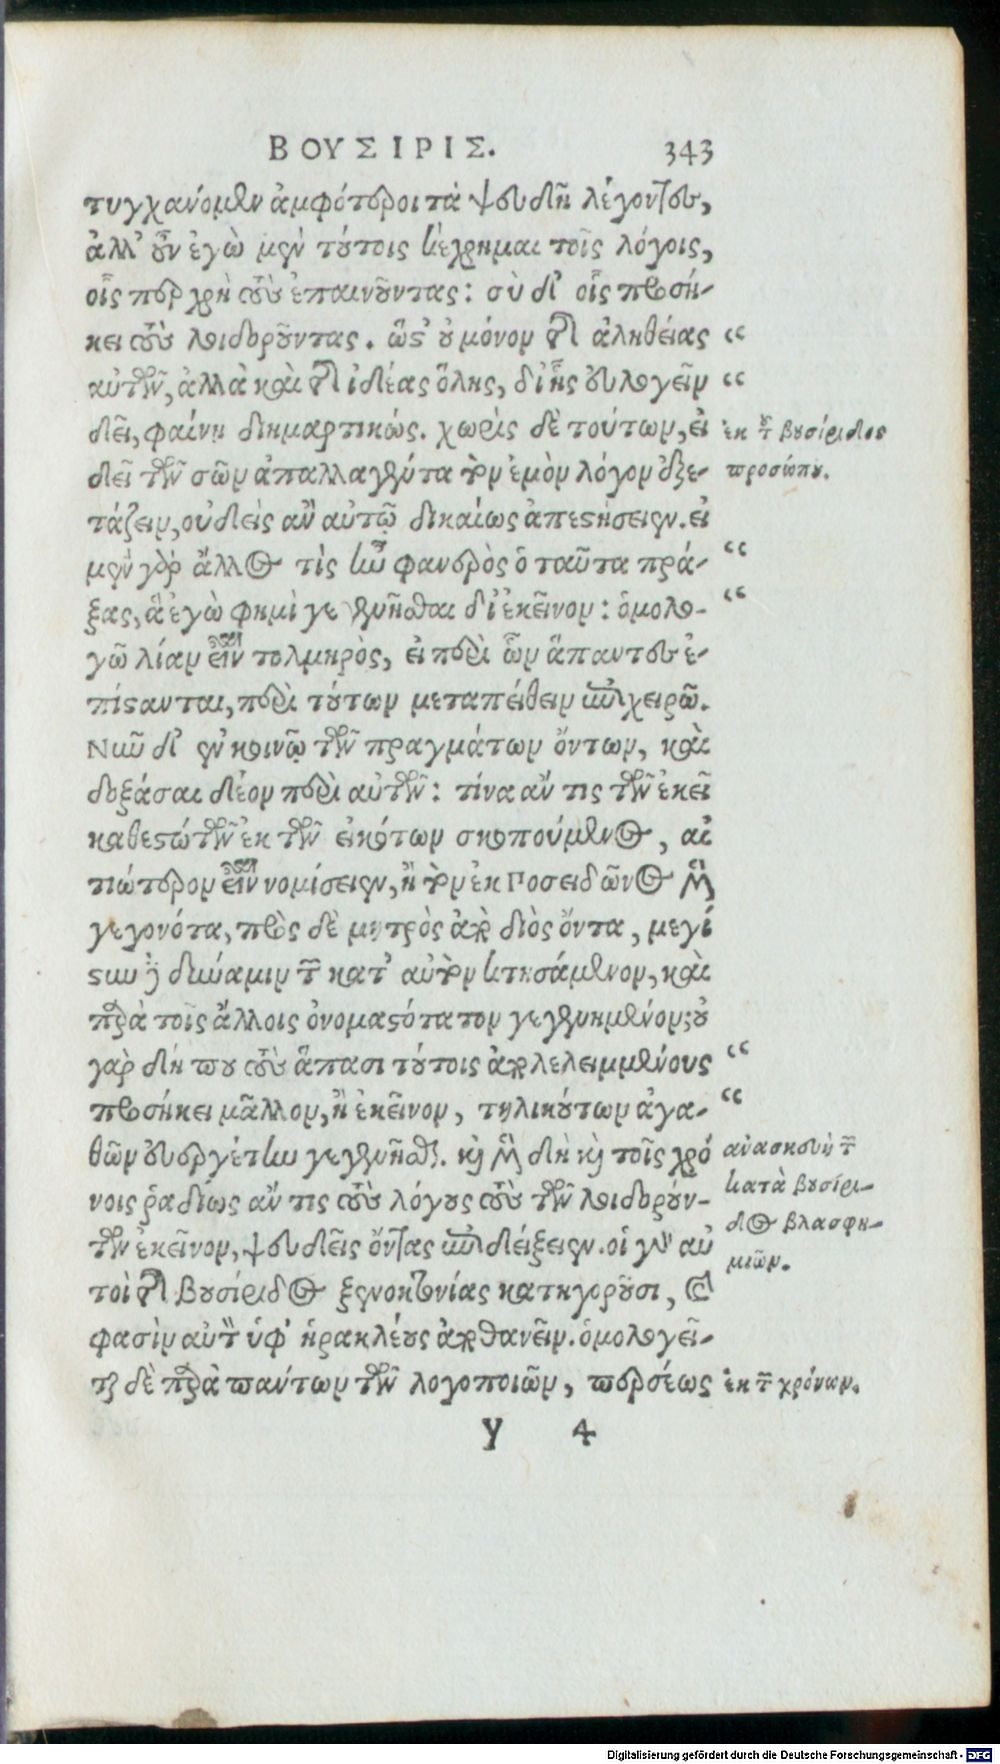 ΒΟΥΣΙΡΙΣ. 343
τυγχανόμεν ἀμφότεροι τὰ ψευδῆ λέγοντες,
ἀλλ' οὖν ἐγὼ μὲν τούτοις κέχρημαι τοῖς λόγοις,
οἷς περ χρὴ τοὺς ἐπαινοῦντας: σὺ δ' οἷς προσή-
κει τοὺς λοιδοροῦντας. ὥστ' οὐ μόνον τῆς ἀληθείας “
αὐτῶν, ἀλλὰ καὶ τῆς ἰδέας ὅλης, δι' ἧς εὐλογεῖν “
δεῖ, φαίνῃ διημαρτηκώς. χωρὶς δὲ τούτων, εἰ
ἐκ τοῦ βουσίριδος
δεῖ τῶν σῶν ἀπαλλαγέντα τὸν ἐμὸν λόγον ἐξε-
προσώπου.
τάζειν, οὐδεὶς ἂν αὐτῷ δικαίως ἀπεστήσειεν. εἰ
μὲν γὰρ ἄλλος τὶς ἦν φανερὸς ὁ ταῦτα πρά- “
ξας, ἃ ἐγὼ φημὶ γεγενῆσθαι δι' ἐκεῖνον: ὁμολο- “
γῶ λίαν εἶναι τολμηρὸς, εἰ περὶ ὧν ἅπαντες ἐ-
πίστανται, περὶ τούτων μεταπείθειν ἐπιχειρῶ.
Νῦν δ' ἐν κοινῷ τῶν πραγμάτων ὄντων, καὶ
δοξάσαι δέον περὶ αὐτῶν: τίνα ἄν τις τῶν ἐκεῖ
καθεστώτων ἐκ τῶν εἰκότων σκοπούμενος, αἰ
τιώτερον εἶναι νομίσειεν, ἢ τὸν ἐκ Ποσειδῶνος μὲν
γεγονότα, πρὸς δὲ μητρὸς ἀπὸ διὸς ὄντα, μεγί
στην δὲ δύναμιν τῶν κατ' αὐτὸν κτησάμενον, καὶ
παρὰ τοῖς ἄλλοις ὀνομαστότατον γεγενημένον; οὐ
γὰρ δή που τοὺς ἅπασι τούτοις ἀπολελειμμένους “
προσήκει μᾶλλον, ἢ ἐκεῖνον, τηλικούτων ἀγα- “
θῶν εὐεργέτην γεγενῆσθαι. καὶ μὲν δὴ καὶ τοῖς χρό
ἀνασκευὴ τῶν
νοις ῥαδίως ἄν τις τοὺς λόγους τοὺς τῶν λοιδορούν-
κατὰ βουσίρι-
των ἐκεῖνον, ψευδεῖς ὄντας ἐπιδείξειεν. οἱ γὰρ αὐ
δος βλασφη-
μιῶν.
τοὶ τῆς βουσίριδος ξενοκτονίας κατηγοροῦσι, καὶ
φασὶν αὐτὸν ὑφ' ἡρακλέους ἀποθανεῖν. ὁμολογεῖ-
ται δὲ παρὰ πάντων τῶν λογοποιῶν, περσέως
ἐκ τῶν χρόνων.
y 4
Digitalisierung gefördert durch die Deutsche Forschungsgemeinschaft - DFG